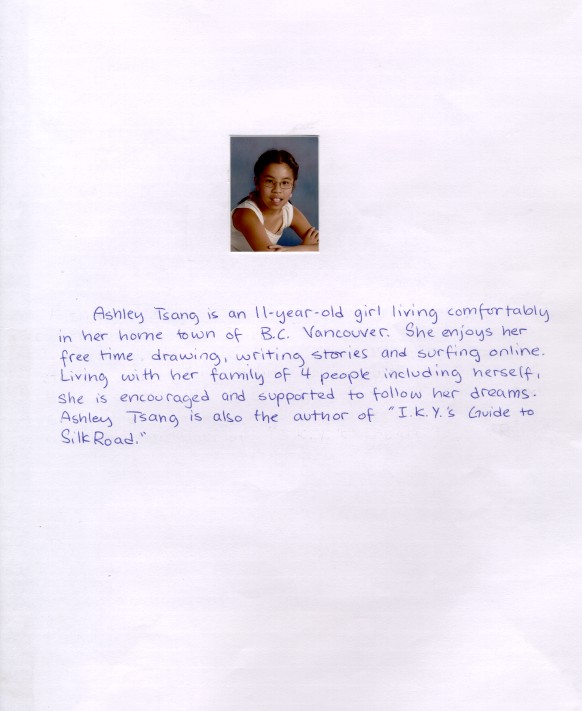 Ashley Tsang is an 11-year-old girl living comfortably
in her home town of B.C. Vancouver. She enjoys her
free time drawing, writing stories and surfing online.
Living with her family of 4 people including herself,
she is encouraged and supported to follow her dreams.
Ashley Tsang is also the author of "I.K.Y.'s Guide to
Silk Road."